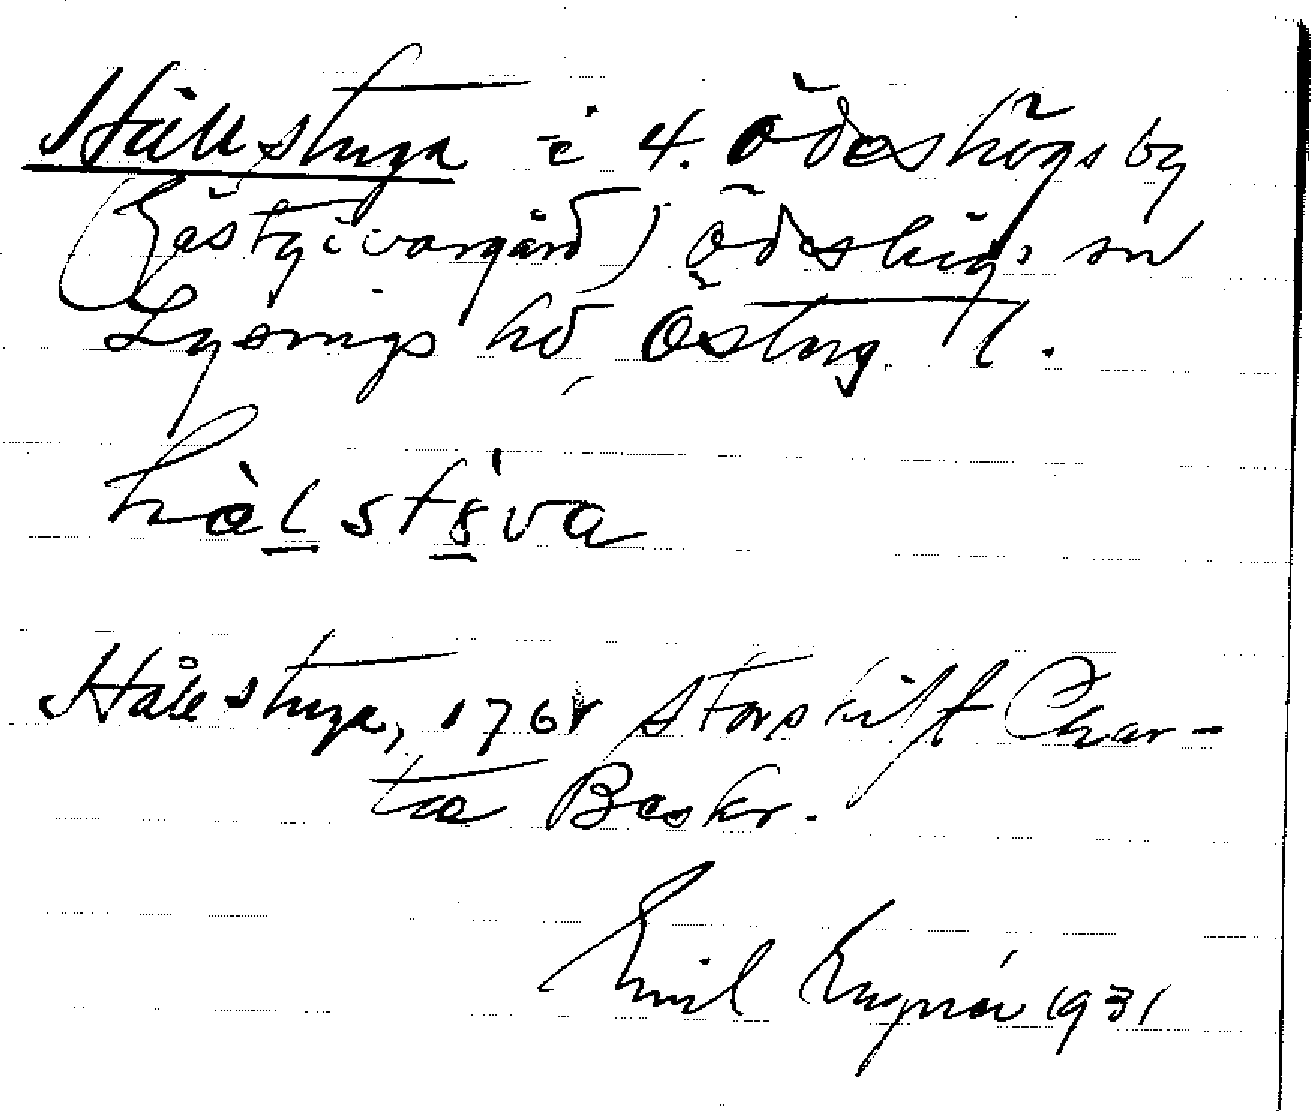 Hålstuga i 4. Ödeshögsby
(Gästgivargård) Ödeshögs sn
Lysings hd Österg. l.
hålstuva
Hålestuga, 1768 Storskift Char-
ta Beskr.
Emil 1931